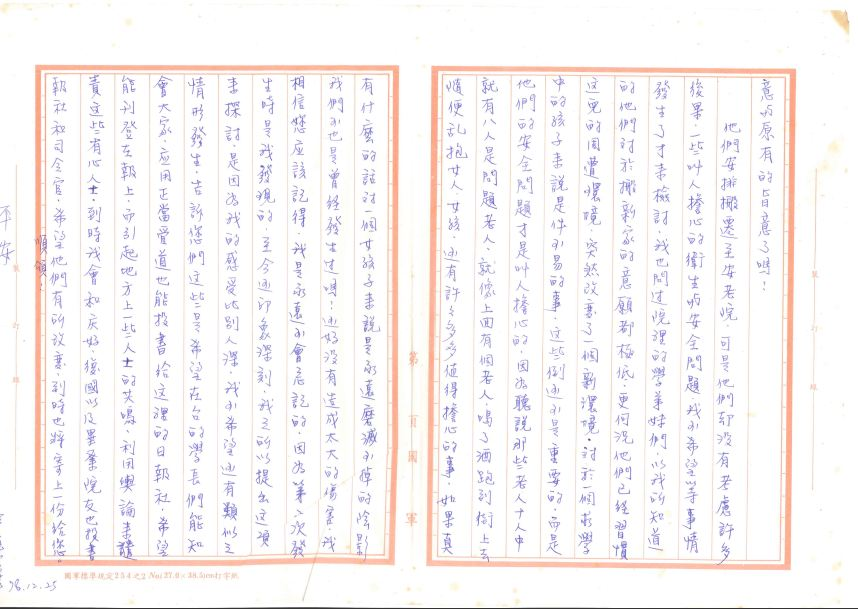 意与原有的旨意了嗎！
他們安排搬遷至安老院，可是他們却没有考慮許多
後果，一些叫人擔心的衛生与安全問題，我不希望等事情
發生了才來檢討，我也問过院裡的學弟妹們，以我所知道
的他們对於搬新家的意願都極低，更何況他們已經習慣
這兒的周遭環境，突然改变了一個新環境，对於一個求學
中的孩子來說是件不易的事，这些倒还不是重要的，而是
他們的安全問題才是叫人擔心的，因为聽說那些老人十人中
就有八人是問題老人，就像上面有個老人，喝了酒跑到街上去
隨便乱抱女人、女孩，还有許多多多值得擔心的事，如果真
有什麼的話对一個女孩子來說是永遠磨滅不掉的陰影
我們不也是曾經發生过嗎！还好没有造成太大的傷害，我
相信您应該記得，我是永遠不會忘記的，因为第一次發
生時是我發現的，至今还印象深刻，我之所以提出这項
來探討，是因为我的感受比别人深，我不希望还有類似之
情形發生，告訴您們这些是希望在台的學長們能知
會大家，应用正當管道也能投書給这裡的日報社，希望
能刊登在報上，而引起地方上一些人士的共鳴，利用輿論來譴
責这些有心人士，到時我會和友好、德國以及畢業院友也投書
報社和司令官，希望他們有所改变，到時也將寄上一份給您。
順頌！
平安
78.12.25
第 頁 國 軍
裝 訂 線
裝 訂 線
國軍標準規定254之2 No1(27.0×38.5)cm打字紙